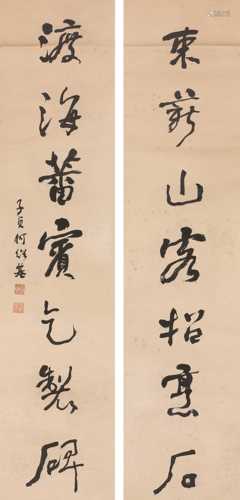 東薪山客招石
渡海蕃賓乞製碑
子貞何紹基